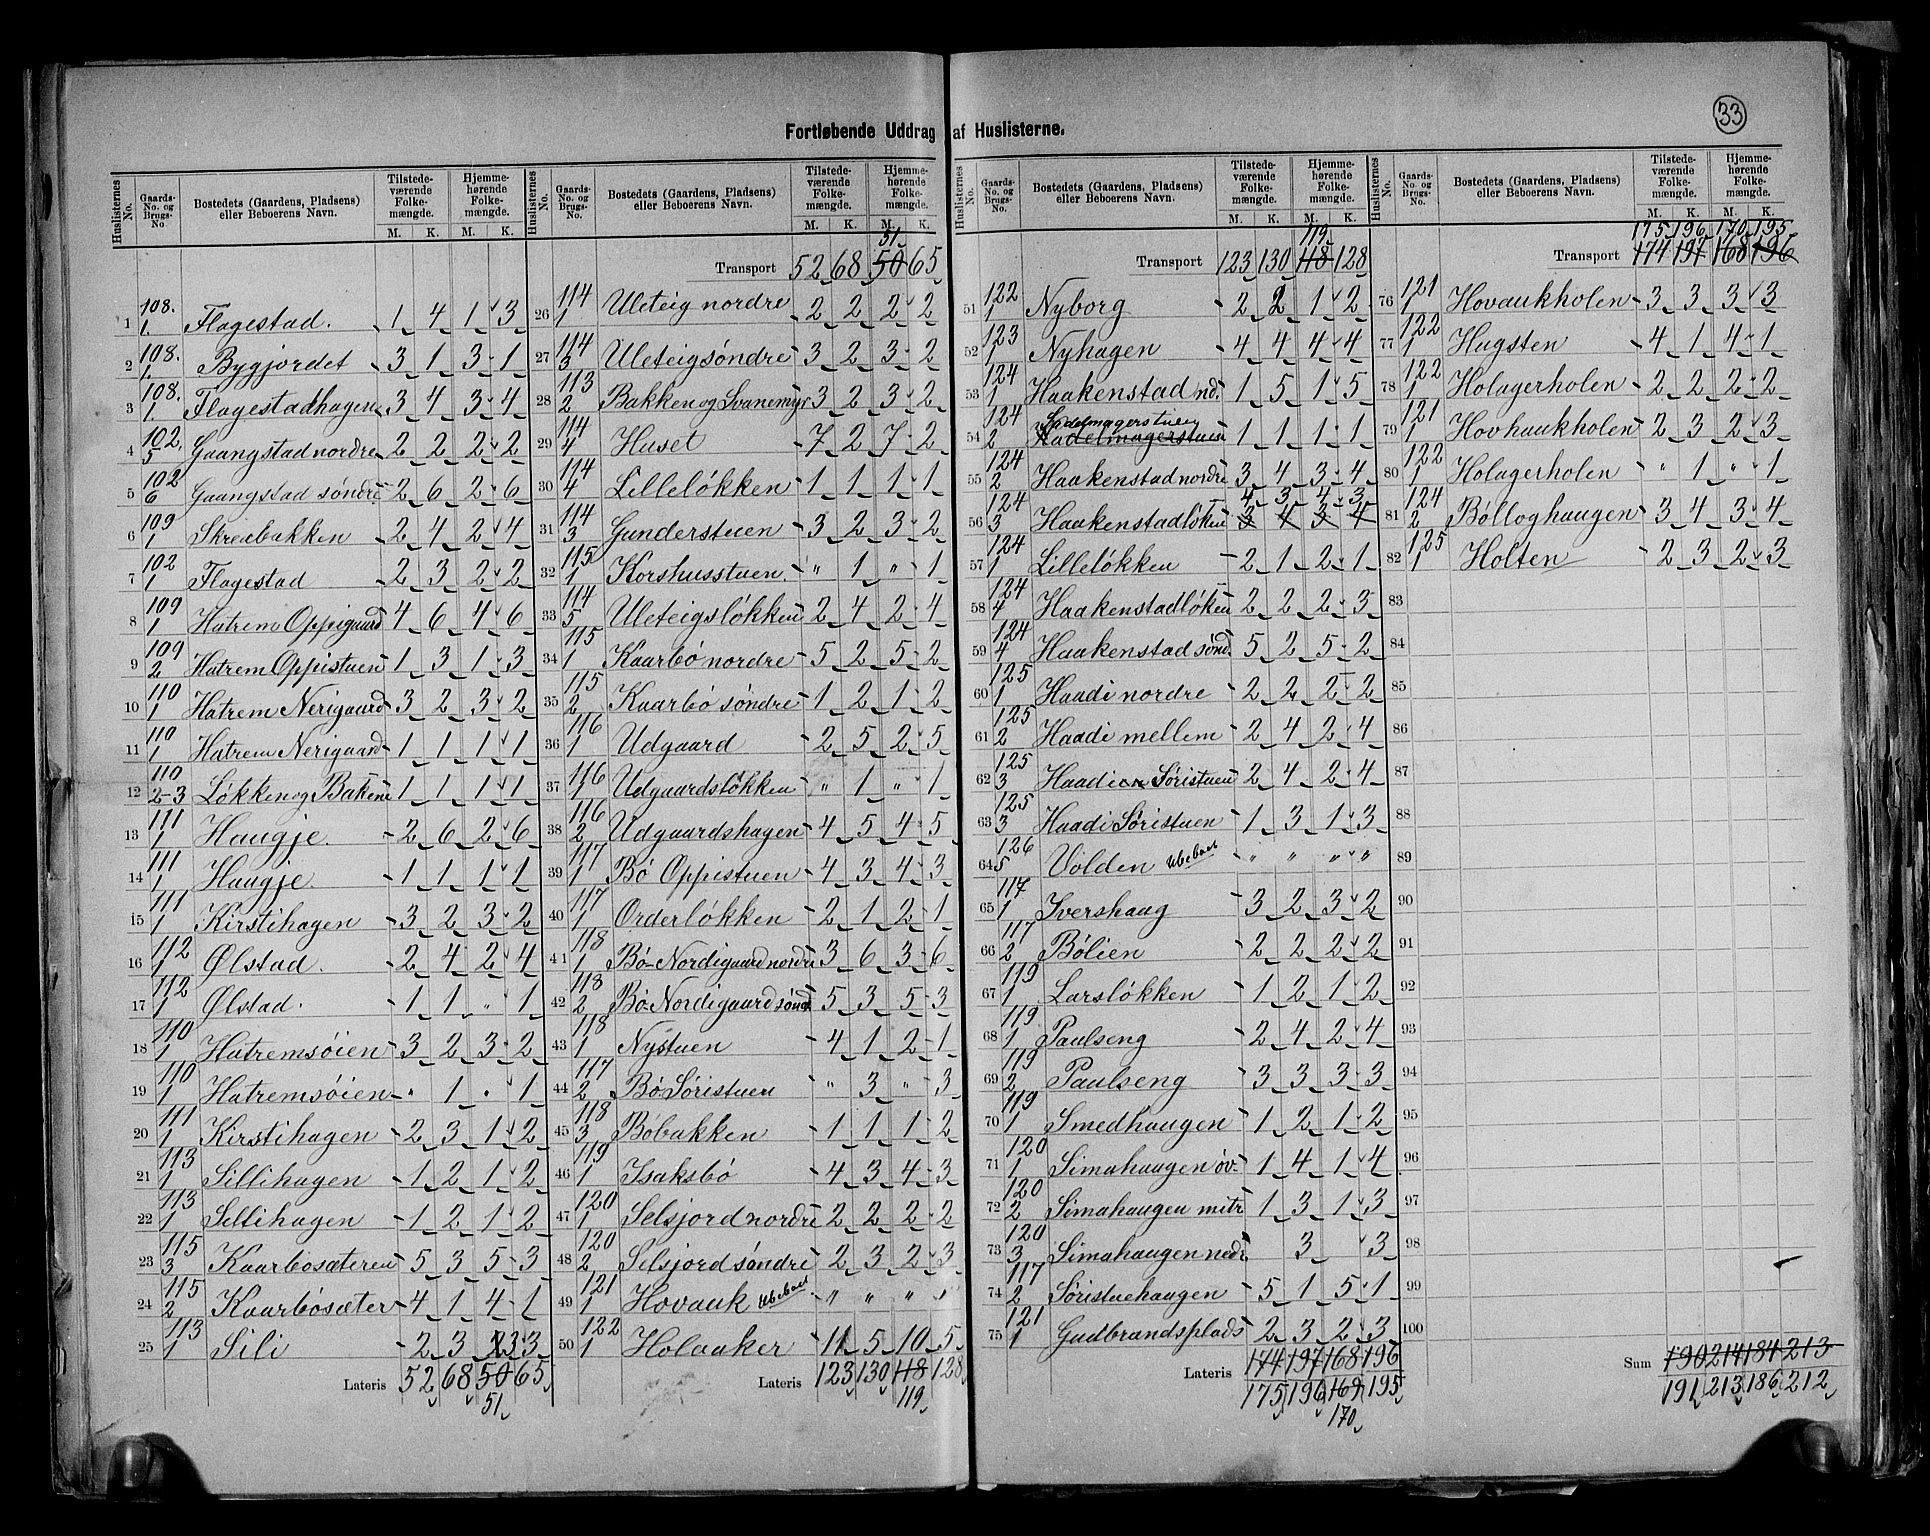 33
Fortløbende Uddrag af Huslisterne.
Huslisternes No. | Gaards-No. og Brugs-No. | Bostedets (Gaardens, Pladsens) eller Beboerens Navn. | Tilstedeværende Folkemængde. M. K. | Hjemmehørende Folkemængde. M. K.
1 108. 1. Flagestad. 1 4 1 3
2 108. 1. Bygjordet 3 1 3 1
3 108. 1. Flagestadhagen 3 4 3 4
4 102. 5 Gaangstad nordre 2 2 2 2
5 102 6 Gaangstad søndre 2 6 2 6
6 109 1 Skredbakken 2 4 2 4
7 102 1 Flagestad 2 3 2 2
8 109 1 Hatrem Oppigaard 4 6 4 6
9 109 2 Hatrem Oppistuen 1 3 1 3
10 110 1 Hatrem Nerigaard 3 2 3 2
11 110 1 Hatrem Nerigaard 1 1 1 1
12 110 2-3 Løkken og Bakken 1 1 1 1
13 111 1 Haugje. 2 6 2 6
14 111 1 Haugje. 1 1 1 1
15 111 1 Kirstihagen 3 2 3 2
16 112 1 Ølstad. 2 4 2 4
17 112 1 Ølstad. 1 1 " 1
18 110 1 Hatremsøien 3 2 3 2
19 110 1 Hatremsøien " 1 " 1
20 111 1 Kirstihagen 2 3 1 2
21 113 1 Sillihagen 1 2 1 2
22 113 1 Sillihagen 1 2 1 2
23 115 3 Kaarbøsæteren 5 3 5 3
24 115 2 Kaarbøsæter 4 1 4 1
25 113 1 Sili 2 3 3 3
Lateris 52 68 50 65
51
51
Transport 52 68 50 65
26 114 1 Uleteig nordre 2 2 2 2
27 114 3 Uleteig søndre 3 2 3 2
28 113 2 Bakken og Svanemyr 3 2 3 2
29 114 4 Huset 7 2 7 2
30 114 4 Lilleløkken 1 1 1 1
31 114 3 Gunderstuen 3 2 3 2
32 115 1 Korshusstuen. " 1 " 1
33 114 5 Uleteigsløkken 2 4 2 4
34 115 1 Kaarbø nordre 5 2 5 2
35 115 2 Kaarbø søndre 1 2 1 2
36 116 1 Udgaard 2 5 2 5
37 116 1 Udgaardsløkken " 1 " 1
38 116 2 Udgaardshagen 4 5 4 5
39 117 1 Bø Oppistuen 4 3 4 3
40 117 1 Orderløkken 2 1 2 1
41 118 1 Bø-Nordigaard nordre 3 6 3 6
42 118 2 Bø-Nordigaard sønd. 5 3 5 3
43 118 1 Nystuen 4 1 2 1
44 117 2 Bø-Søristuen " 3 " 3
45 118 3 Bøbakken 1 1 1 2
46 119 1 Isaksbø 4 3 4 3
47 120 1 Selsjord nordre 2 2 2 2
48 120 2 Selsjord søndre 2 3 2 3
49 121 1 Hovauk Ubeboet " " " "
50 122 1 Holaaker 11 5 10 5
Lateris 123 130 118 128
119
119
Transport 123 130 118 128
51 122 1 Nyborg 2 2 1 2
52 123 1 Nyhagen 4 4 4 4
53 124 1 Haakenstad nd. 1 5 1 5
54 124 2 Sadelmagerstuen Sadelmagerstuen 1 1 1 1
55 124 2 Haakenstad nordre 3 4 3 4
4 3 4 3
56 124 3 Haakenstadløken 3 4 3 4
57 124 1 Lilleløkken 2 1 2 1
58 124 4 Haakenstadløken 2 2 2 3
59 124 4 Haakenstad sønd. 5 2 5 2
60 125 1 Haadi nordre 2 2 2 2
61 125 2 Haadi mellem 2 4 2 4
62 125 3 Haadi Søristuen 2 4 2 4
63 125 3 Haadi Søristuen 1 3 1 3
64 126 5 Volden Ubeboet " " " "
65 117 1 Ivershaug 3 2 3 2
66 117 2 Bølien 2 2 2 2
67 119 1 Larsløkken 1 2 1 2
68 119 1 Paulseng 2 4 2 4
69 119 2 Paulseng 3 3 3 3
70 119 1 Smedhaugen 1 2 1 2
71 120 1 Simahaugen øv. 1 4 1 4
72 120 2 Simahaugen mitr 1 3 1 3
73 120 3 Simahaugen nedr 3 3
74 117 2 Søristuehaugen 5 1 5 1
75 121 1 Gudbrandsplads 2 3 2 3
Lateris 174 197 168 196
175 196 169 195
170
175 196 170 195
Transport 174 197 168 196
76 121 1 Hovaukholen 3 3 3 3
77 122 1 Hugsten 4 1 4 1
78 122 1 Holagerholen 2 2 2 2
79 121 1 Hovhaukholen 2 3 2 3
80 122 1 Holagerholen " 1 " 1
81 124 2 Bølloghaugen 3 4 3 4
82 125 1 Holten 2 3 2 3
83
84
85
86
87
88
89
90
91
92
93
94
95
96
97
98
99
100
Sum 190 214 184 213
191 213 186 212